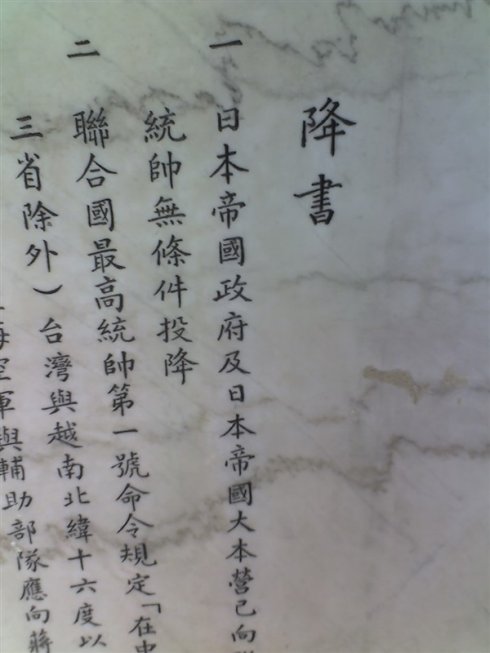 降書
一 日本帝國政府及日本帝國大本營已向聯
統帥無條件投降
二 聯合國最高統帥第一號命令規定「在中
三省除外）台灣與越南北緯十六度以
海空軍與輔助部隊應向蔣